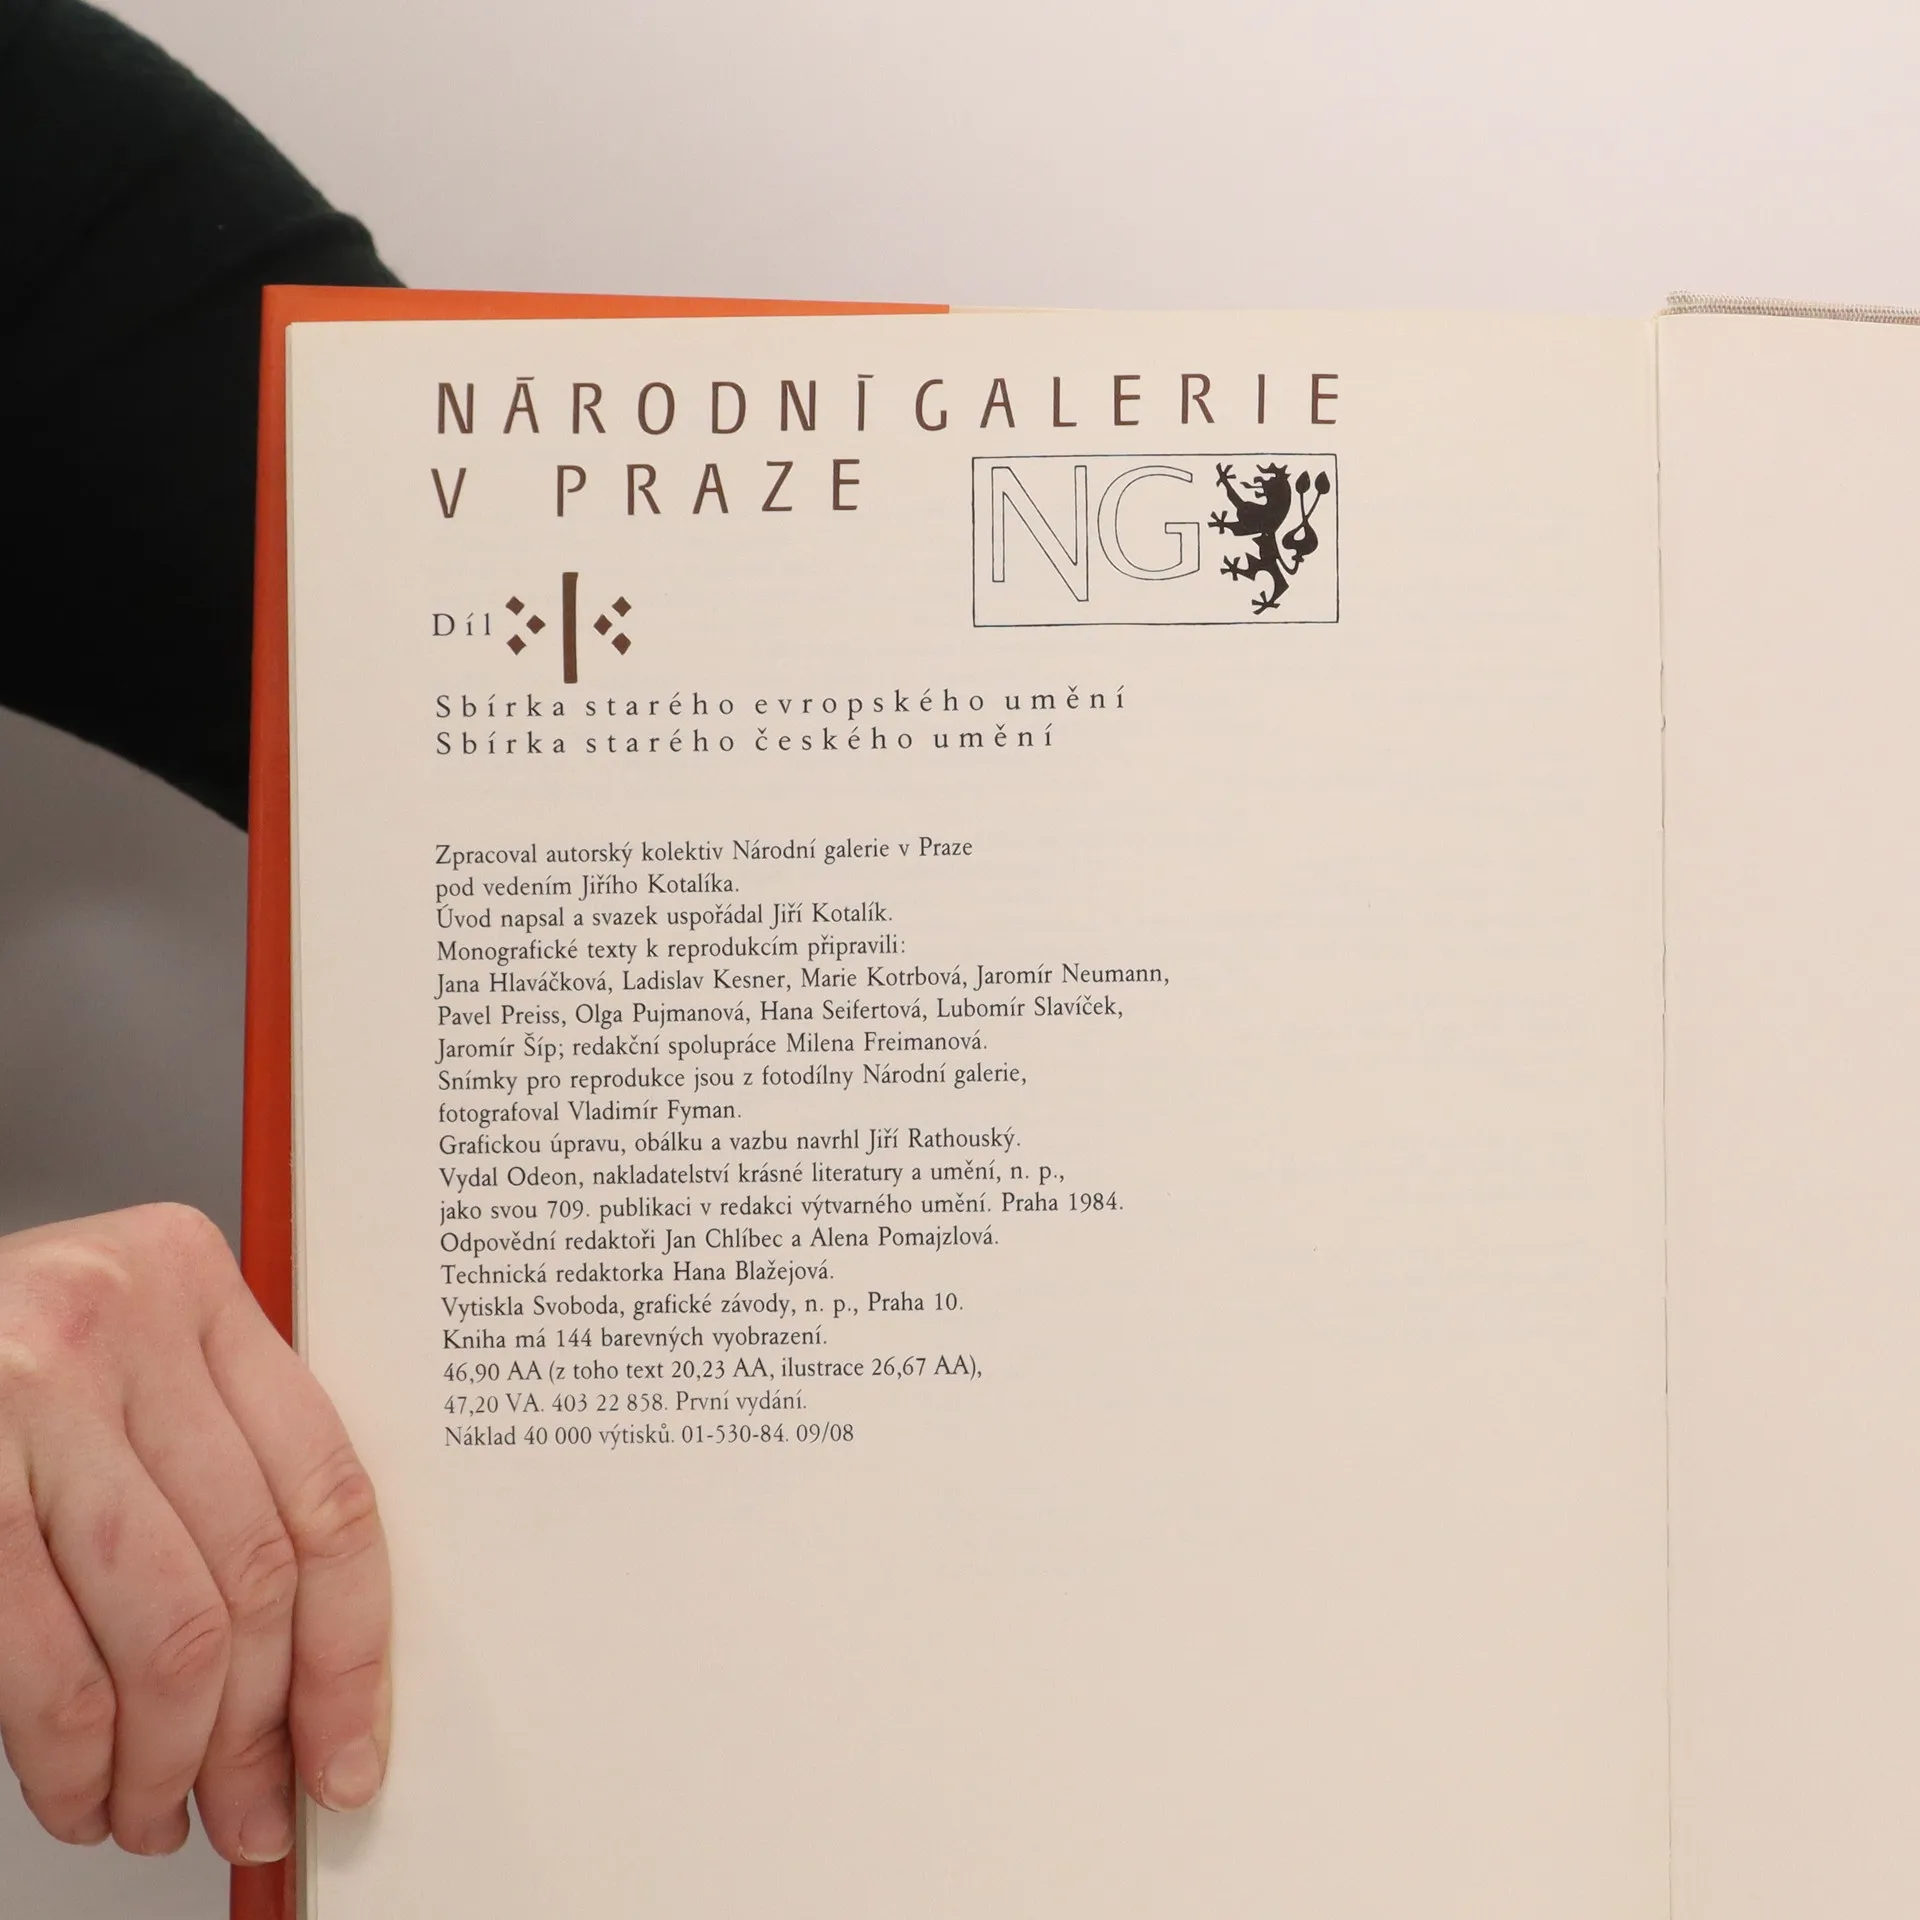 NÁRODNÍ GALERIE
V PRAZE
NG
Díl I
Sbírka starého evropského umění
Sbírka starého českého umění
Zpracoval autorský kolektiv Národní galerie v Praze
pod vedením Jiřího Kotalíka.
Úvod napsal a svazek uspořádal Jiří Kotalík.
Monografické texty k reprodukcím připravili:
Jana Hlaváčková, Ladislav Kesner, Marie Kotrbová, Jaromír Neumann,
Pavel Preiss, Olga Pujmanová, Hana Seifertová, Lubomír Slavíček,
Jaromír Šíp; redakční spolupráce Milena Freimanová.
Snímky pro reprodukce jsou z fotodílny Národní galerie,
fotografoval Vladimír Fyman.
Grafickou úpravu, obálku a vazbu navrhl Jiří Rathouský.
Vydal Odeon, nakladatelství krásné literatury a umění, n. p.,
jako svou 709. publikaci v redakci výtvarného umění. Praha 1984.
Odpovědní redaktoři Jan Chlíbec a Alena Pomajzlová.
Technická redaktorka Hana Blažejová.
Vytiskla Svoboda, grafické závody, n. p., Praha 10.
Kniha má 144 barevných vyobrazení.
46,90 AA (z toho text 20,23 AA, ilustrace 26,67 AA),
47,20 VA. 403 22 858. První vydání.
Náklad 40 000 výtisků. 01-530-84. 09/08